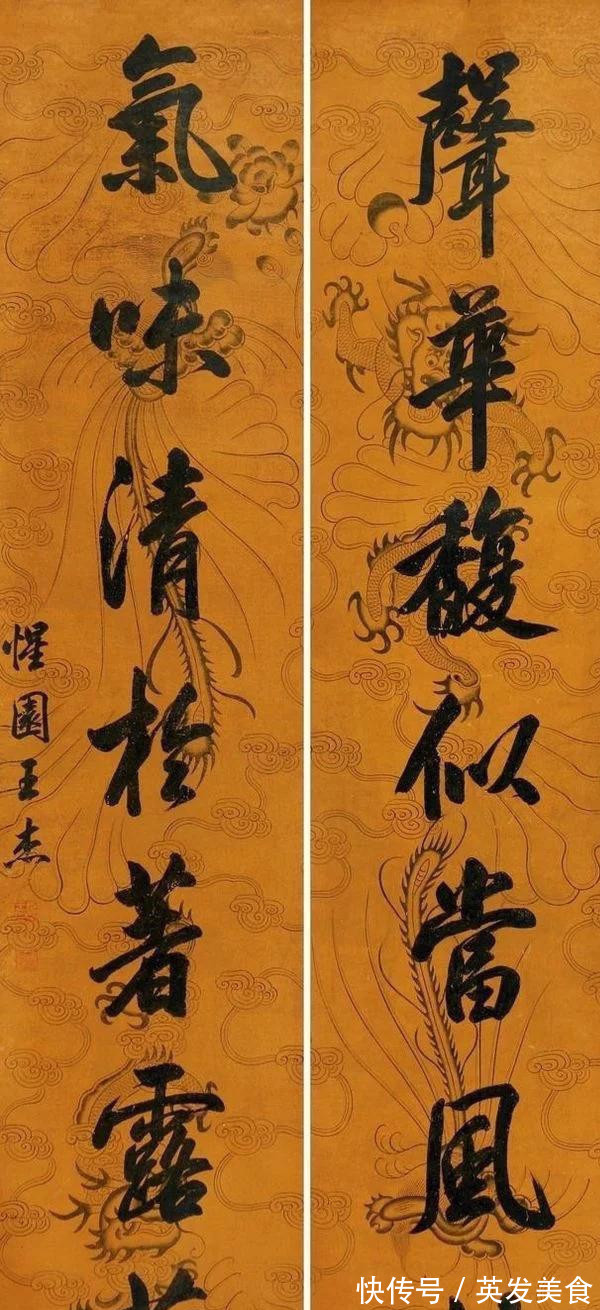 聲華馥似當風
氣味清於著露
惺園王杰
快传号 / 英发美食